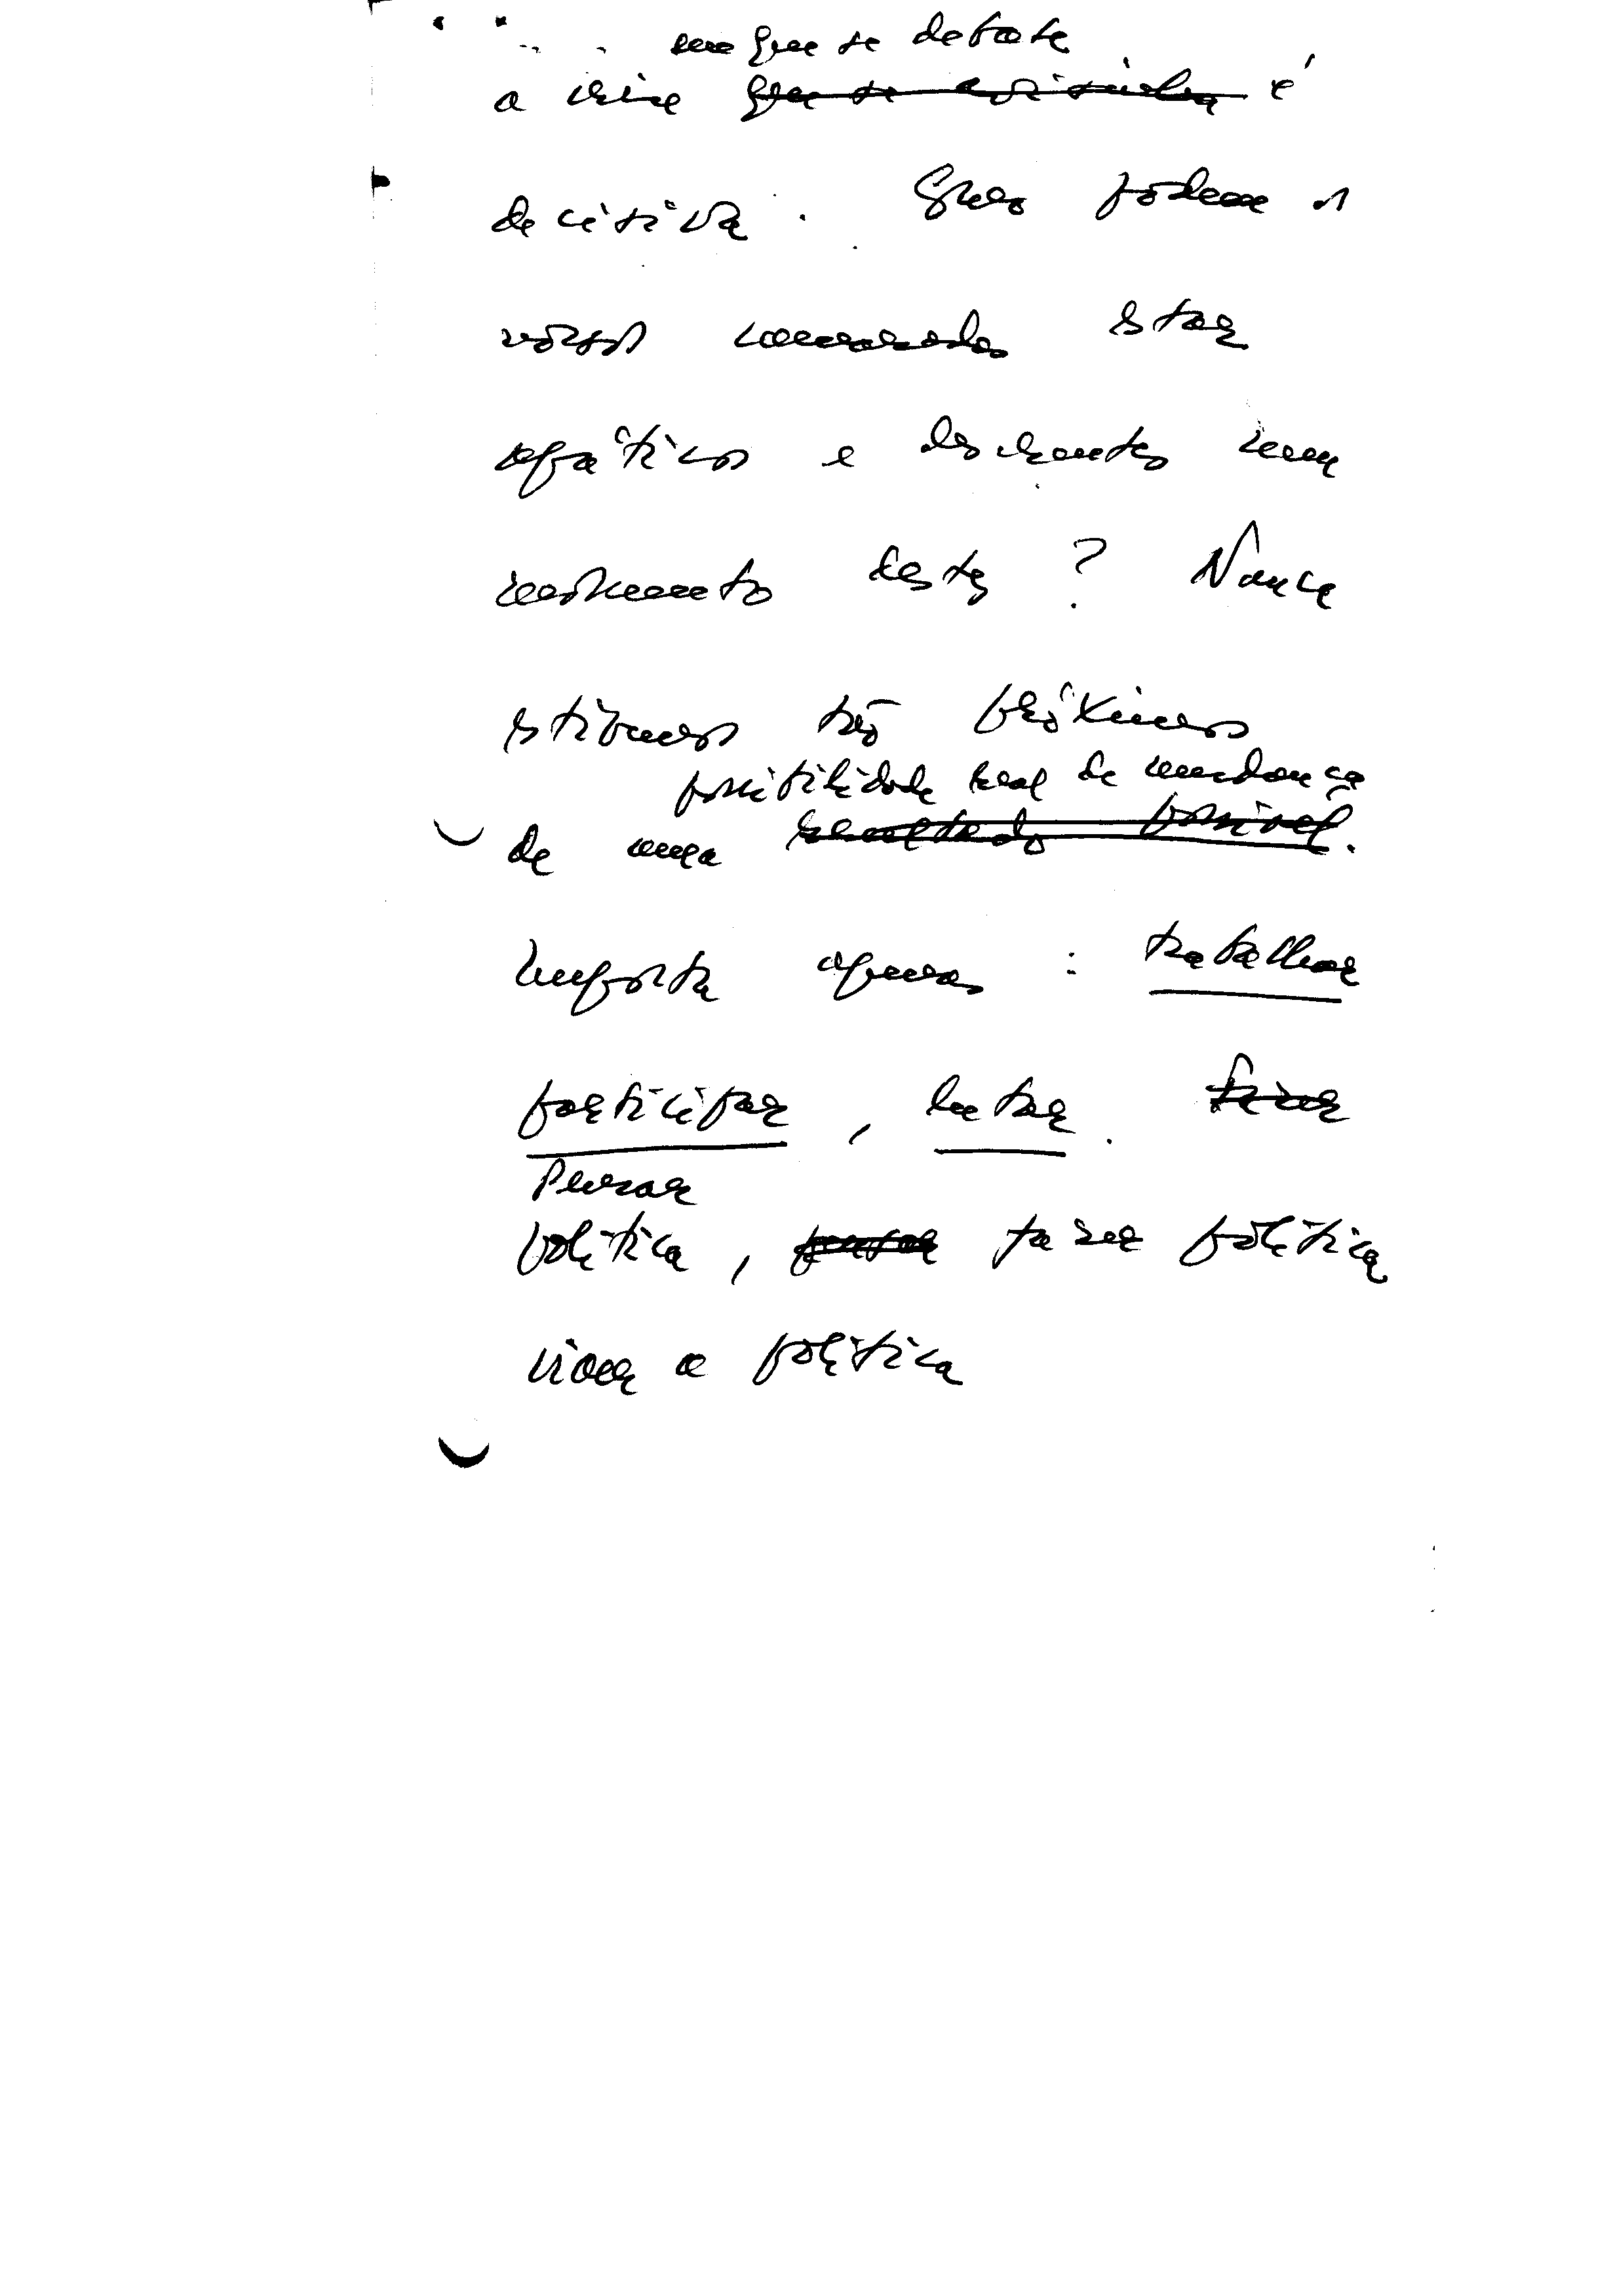 em que se debate
a crise que se avizinha é
decisiva. Que podem os
nossos camaradas estar
apáticos e descrentes num
momento destes? Nunca
estivemos tão próximos
possibilidade real de mudança
de uma resultado possível.
Importa apenas : trabalhar
participar, lutar.
Pensar
política, pensar fazer política
viver a política